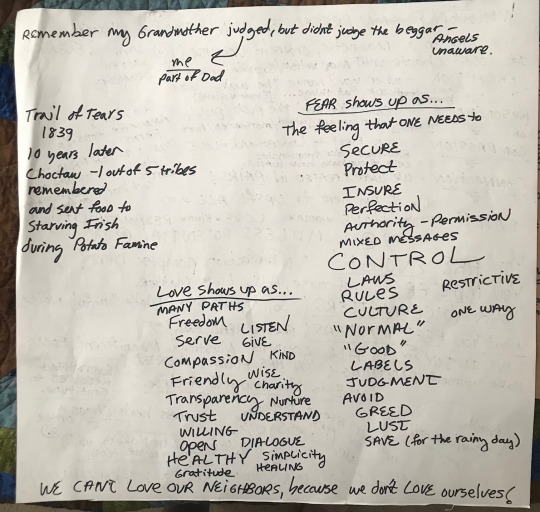 Remember my Grandmother judged, but didn't judge the beggar —
Angels
unaware.
me
part of Dad
Trail of Tears
1839
10 years later
Choctaw - 1 out of 5 tribes
remembered
and sent food to
Starving Irish
during Potato Famine
FEAR shows up as...
The feeling that ONE NEEDS to
SECURE
Protect
INSURE
Perfection
Authority - Permission
MIXED MESSAGES
CONTROL
LAWS RESTRICTIVE
RULES
CULTURE ONE WAY
"NORMAL"
"GOOD"
LABELS
JUDGMENT
AVOID
GREED
LUST
SAVE (for the rainy day)
Love shows up as...
MANY PATHS
Freedom LISTEN
Serve GIVE
Compassion KIND
Friendly WISE
Charity
Transparency Nurture
Trust UNDERSTAND
WILLING
OPEN DIALOGUE
HEALTHY Simplicity
Gratitude HEALING
WE CAN'T LOVE OUR NEIGHBORS, because we don't LOVE ourselves!